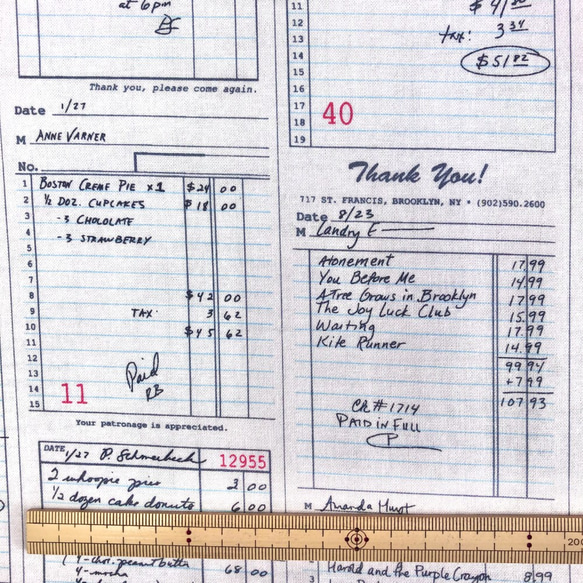 at 6pm
Thank you, please come again.
Date 1/27
M ANNE VARNER
No.
1 BOSTON CREME PIE x1 $24 00
2 ½ DOZ. CUPCAKES $18 00
3 -3 CHOCOLATE
4
5 -3 STRAWBERRY
6
7
8 $42 00
9 TAX: 3 62
10 $45 62
11
12
13 Paid
14 RB
15
11
Your patronage is appreciated.
DATE 1/27 12955
2 whoopie pies 3 00
½ dozen cake donuts 6 00
68 00
11
12 tax: 3 34
13
14 $51 82
15
16
17
18
19
40
Thank You!
717 ST. FRANCIS, BROOKLYN, NY • (902)590.2600
Date 8/23
M Landry E
Atonement 17.99
You Before Me 14.99
A Tree Grows in Brooklyn 17.99
The Joy Luck Club 15.99
Waiting 17.99
Kite Runner 14.99
99.94
+7.99
107.93
CR# 1714
PAID IN FULL
P
M Amanda Hunt
200
Harold and the Purple Crayon 8.99